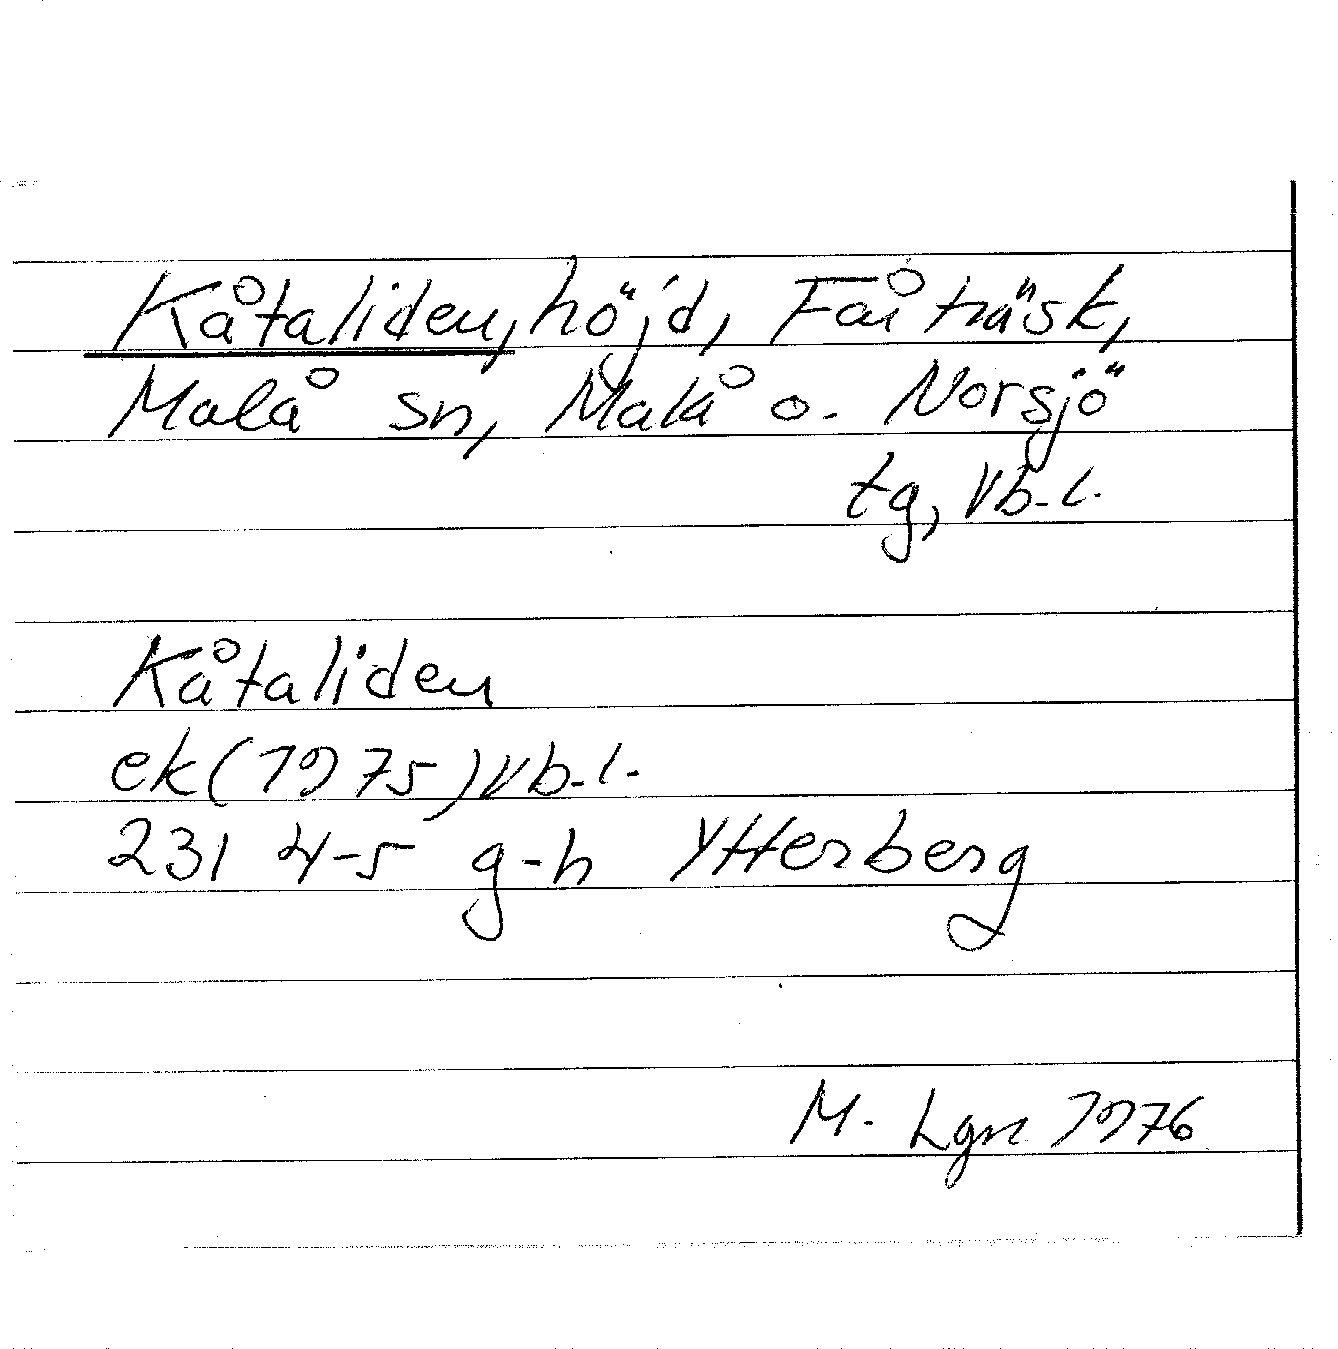 Kåtaliden, höjd, Fårträsk,
Malå sn, Malå o. Norsjö
tg, Vb. l.
Kåtaliden
ek (1975) Vb. l.
231 4-5 g-h Ytterberg
M. Lgn 1976